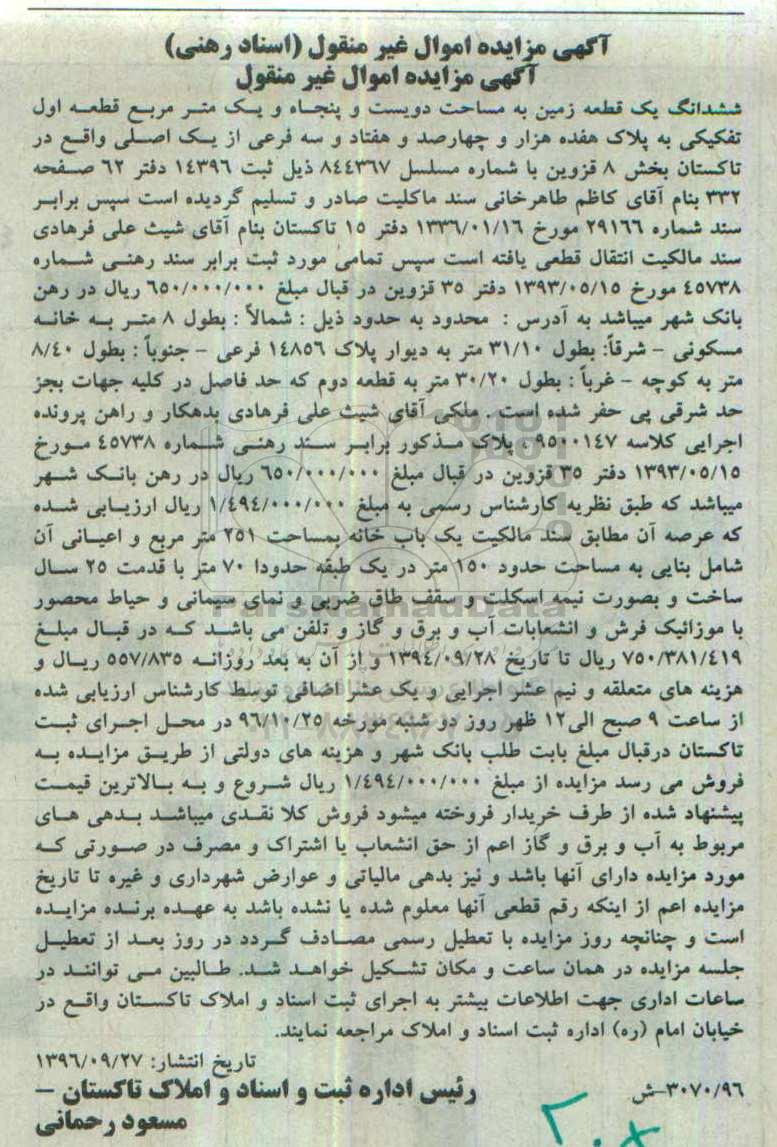 آگهی مزایده اموال غیر منقول (اسناد رهنی)
آگهی مزایده اموال غیر منقول
ششدانگ یک قطعه زمین به مساحت دویست و پنجاه و یک متر مربع قطعه اول
تفکیکی به پلاک هفده هزار و چهارصد و هفتاد و سه فرعی از یک اصلی واقع در
تاکستان بخش ۸ قزوین با شماره مسلسل ۸٤٤۳٦۷ ذیل ثبت ۱٤۳۹٦ دفتر ٦۲ صفحه
۳۳۲ بنام آقای کاظم طاهرخانی سند ماکلیت صادر و تسلیم گردیده است سپس برابر
سند شماره ۲۹۱٦٦ مورخ ۱۳۳٦/۰۱/۱٦ دفتر ۱۵ تاکستان بنام آقای شیث علی فرهادی
سند مالکیت انتقال قطعی یافته است سپس تمامی مورد ثبت برابر سند رهنی شماره
٤۵۷۳۸ مورخ ۱۳۹۳/۰۵/۱۵ دفتر ۳۵ قزوین در قبال مبلغ ٦۵۰/۰۰۰/۰۰۰ ریال در رهن
بانک شهر میباشد به آدرس : محدود به حدود ذیل : شمالاً : بطول ۸ متر به خانه
مسکونی - شرقاً: بطول ۳۱/۱۰ متر به دیوار پلاک ۱٤۸۵٦ فرعی - جنوباً : بطول ۸/٤۰
متر به کوچه - غرباً : بطول ۳۰/۲۰ متر به قطعه دوم که حد فاصل در کلیه جهات بجز
حد شرقی پی حفر شده است . ملکی آقای شیث علی فرهادی بدهکار و راهن پرونده
اجرایی کلاسه ۹۵۰۰۱٤۷ ، پلاک مذکور برابر سند رهنی شماره ٤۵۷۳۸ مورخ
۱۳۹۳/۰۵/۱۵ دفتر ۳۵ قزوین در قبال مبلغ ٦۵۰/۰۰۰/۰۰۰ ریال در رهن بانک شهر
میباشد که طبق نظریه کارشناس رسمی به مبلغ ۱/٤۹٤/۰۰۰/۰۰۰ ریال ارزیابی شده
که عرصه آن مطابق سند مالکیت یک باب خانه بمساحت ۲۵۱ متر مربع و اعیانی آن
شامل بنایی به مساحت حدود ۱۵۰ متر در یک طبقه حدودا ۷۰ متر با قدمت ۲۵ سال
ساخت و بصورت نیمه اسکلت و سقف طاق ضربی و نمای سیمانی و حیاط محصور
با موزائیک فرش و انشعابات آب و برق و گاز و تلفن می باشد که در قبال مبلغ
۷۵۰/۳۸۱/٤۱۹ ریال تا تاریخ ۱۳۹٤/۰۹/۲۸ و از آن به بعد روزانه ۵۵۷/۸۳۵ ریال و
هزینه های متعلقه و نیم عشر اجرایی و یک عشر اضافی توسط کارشناس ارزیابی شده
از ساعت ۹ صبح الی۱۲ ظهر روز دو شنبه مورخه ۹٦/۱۰/۲۵ در محل اجرای ثبت
تاکستان درقبال مبلغ بابت طلب بانک شهر و هزینه های دولتی از طریق مزایده به
فروش می رسد مزایده از مبلغ ۱/٤۹٤/۰۰۰/۰۰۰ ریال شروع و به بالاترین قیمت
پیشنهاد شده از طرف خریدار فروخته میشود فروش کلا نقدی میباشد بدهی های
مربوط به آب و برق و گاز اعم از حق انشعاب یا اشتراک و مصرف در صورتی که
مورد مزایده دارای آنها باشد و نیز بدهی مالیاتی و عوارض شهرداری و غیره تا تاریخ
مزایده اعم از اینکه رقم قطعی آنها معلوم شده یا نشده باشد به عهده برنده مزایده
است و چنانچه روز مزایده با تعطیل رسمی مصادف گردد در روز بعد از تعطیل
جلسه مزایده در همان ساعت و مکان تشکیل خواهد شد. طالبین می توانند در
ساعات اداری جهت اطلاعات بیشتر به اجرای ثبت اسناد و املاک تاکستان واقع در
خیابان امام (ره) اداره ثبت اسناد و املاک مراجعه نمایند.
تاریخ انتشار: ۱۳۹٦/۰۹/۲۷
۳۰۷۰/۹٦-ش رئیس اداره ثبت و اسناد و املاک تاکستان -
مسعود رحمانی
ParsNamadData